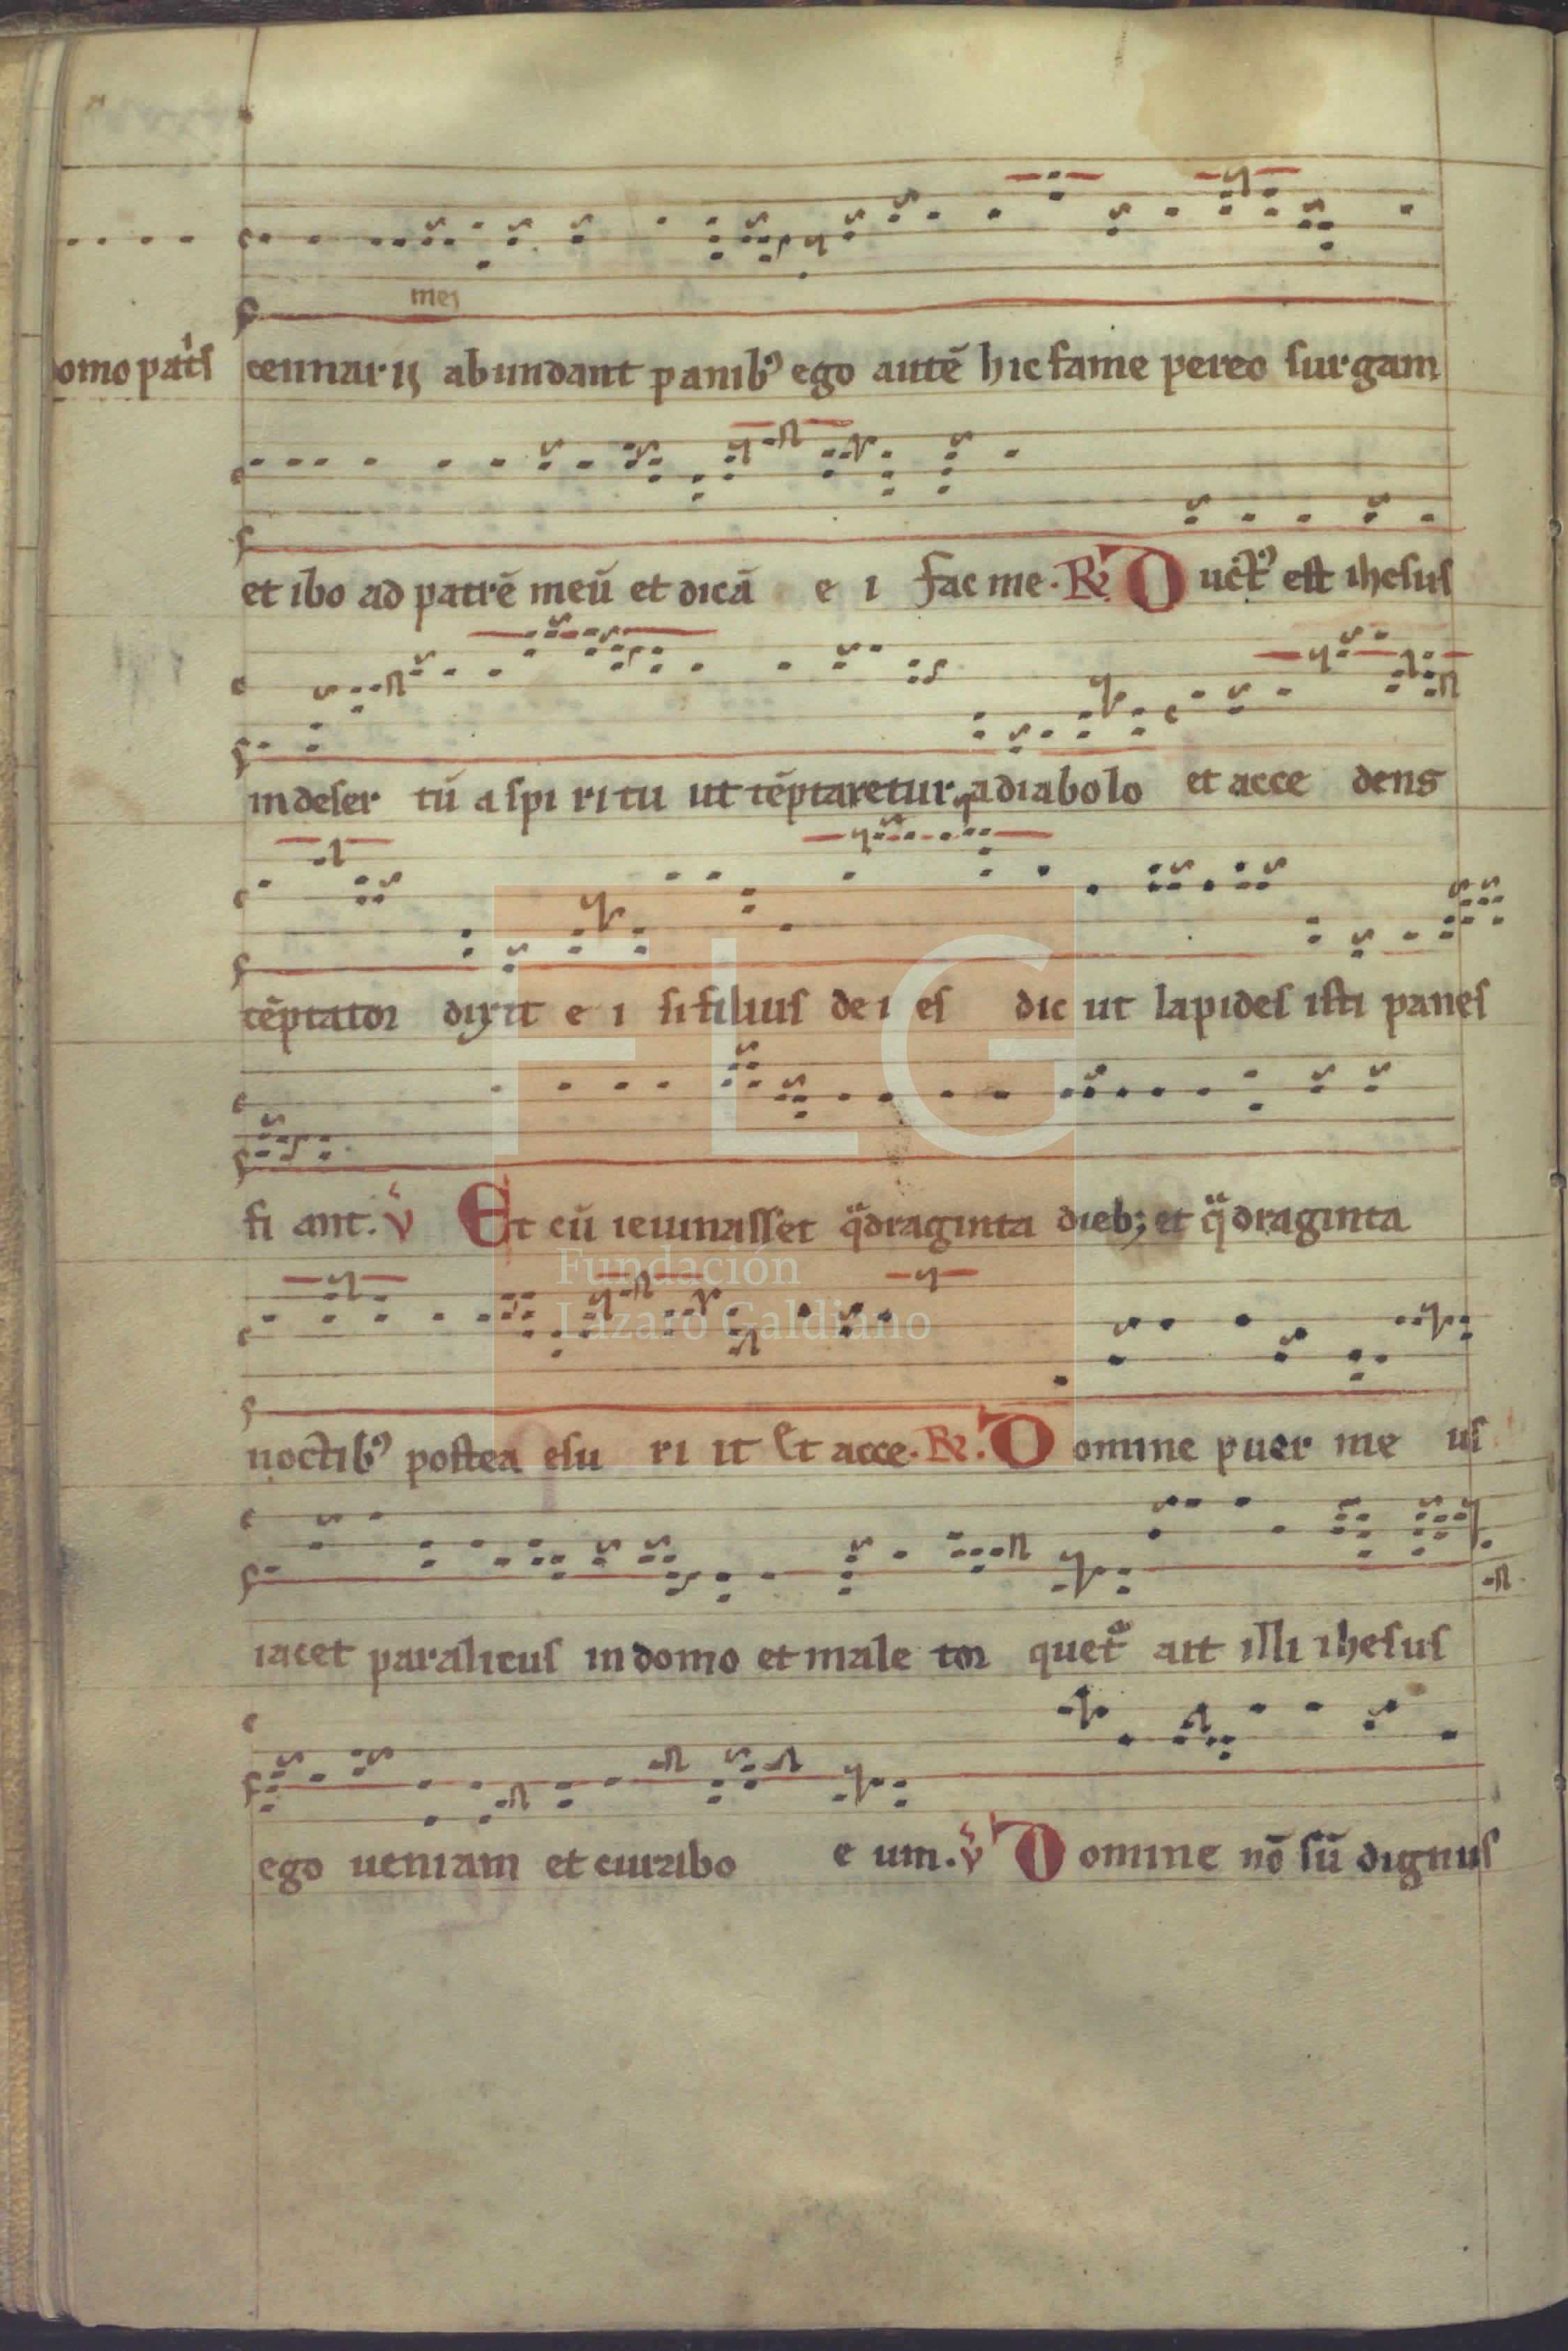 mei
domo pat̾s cennarij abundant panib⁹ ego autē hic fame pereo surgam
et ibo ad patrē meū et dicā e i fac me. R̷. Duct⁹ est ihesus
in deser tū a spi ri tu ut tēptaretur a diabolo et acce dens
tēptator dixit e i si filius de i es dic ut lapides isti panes
fi ant. v̾ Et cū ieiunasset qᵃdraginta dieb; et qᵃdraginta
noctib⁹ postea esu ri it Et acce. R̷. Domine puer me us
Fundación
Lázaro Galdiano
iacet paraliticus in domo et male tor quet̾ ait illi ihesus
ego ueniam et curabo e um. v̾ Domine nō sū dignus
FLG